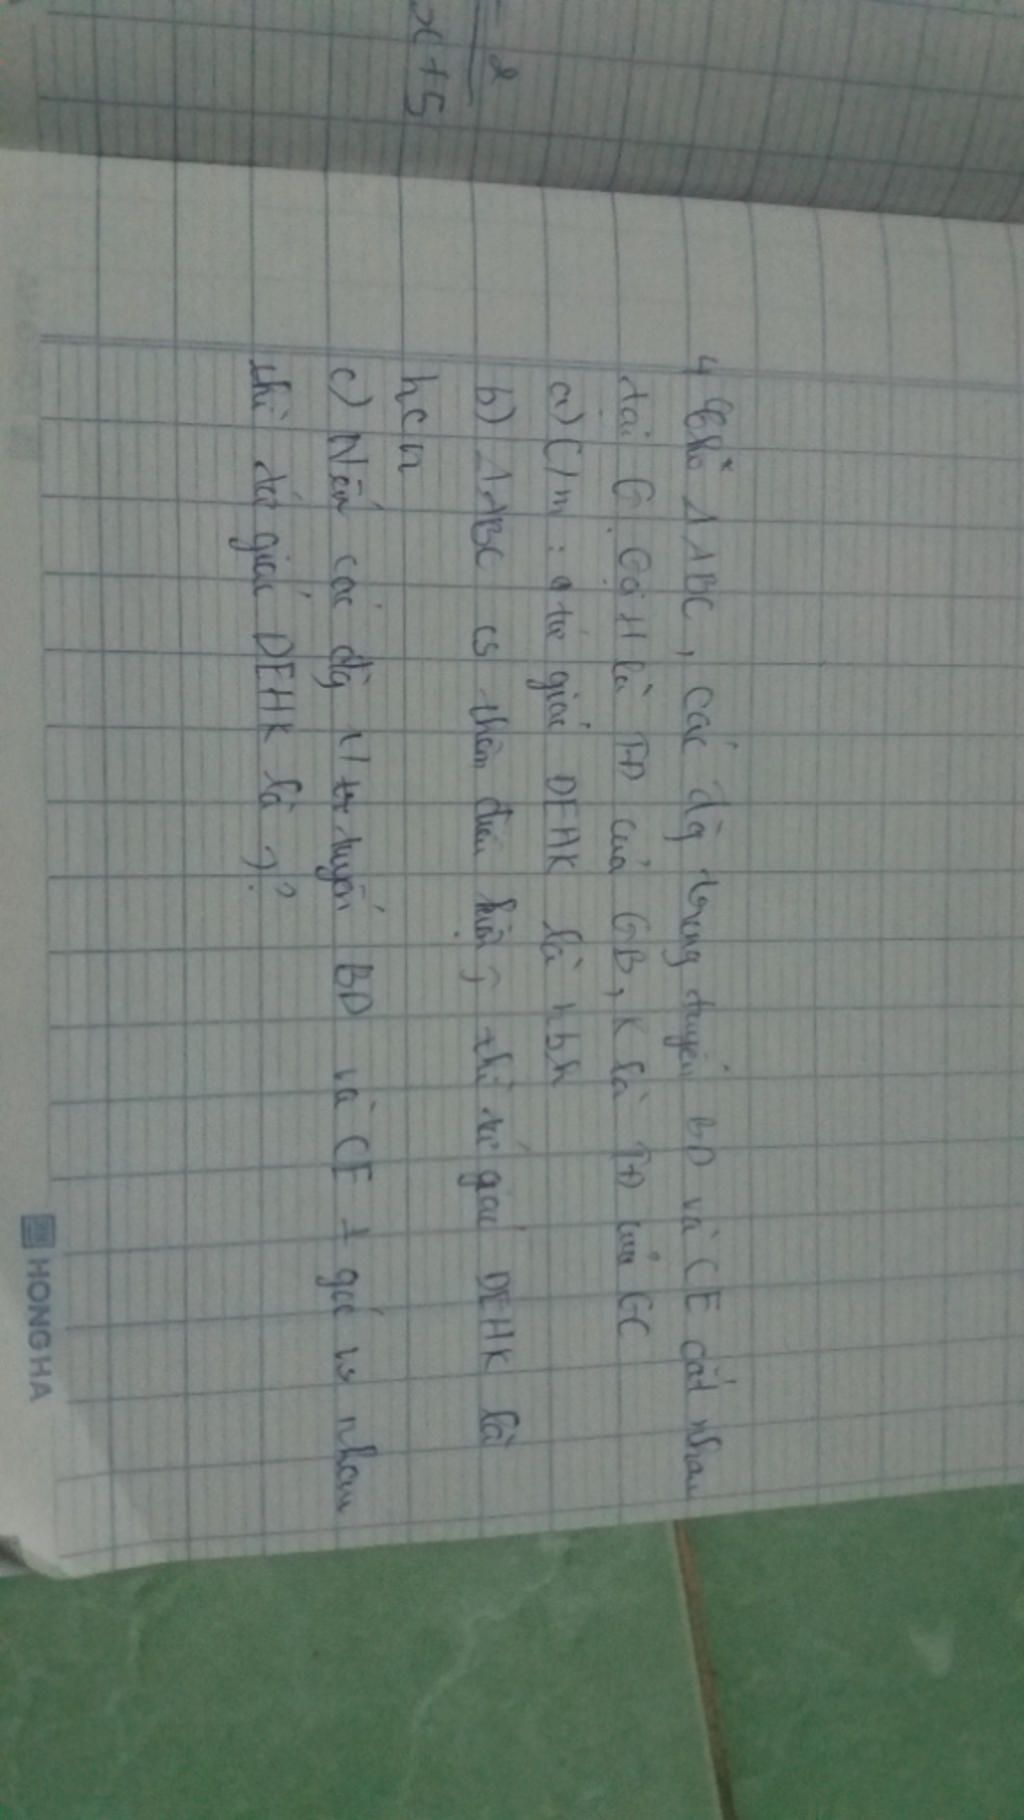 2
x+5
4 Cho Δ ABC, các đg trung tuyến BD và CE cắt nhau
tại G. Gọi H là TĐ của GB, K là TĐ của GC
a) C/m: tứ giác DEHK là hbh
b) Δ ABC cs thêm điều kiện ? thì tứ giác DEHK là
hcn
c) Nếu các đg tr tuyến BD và CE ⊥ góc vs nhau
thì tứ giác DEHK là ?
HONG HA